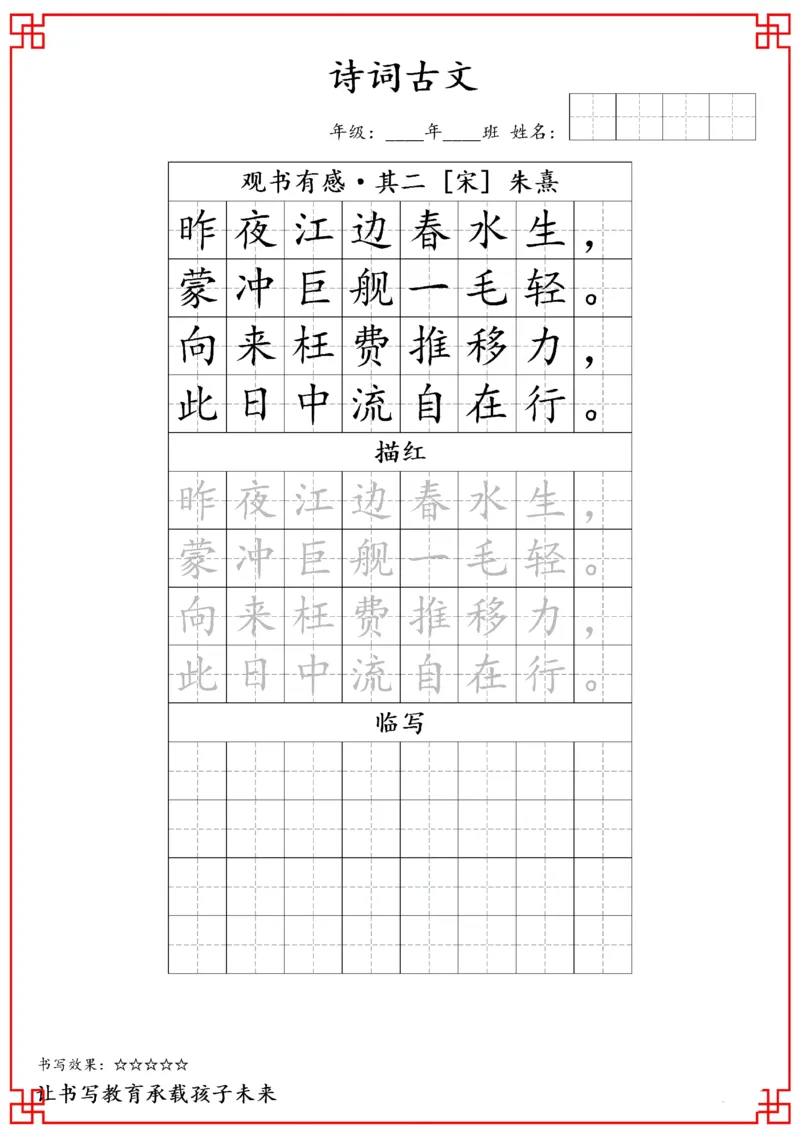 诗词古文
年级：____年____班 姓名：
观书有感·其二［宋］朱熹
昨夜江边春水生，
蒙冲巨舰一毛轻。
向来枉费推移力，
此日中流自在行。
描红
昨夜江边春水生，
蒙冲巨舰一毛轻。
向来枉费推移力，
此日中流自在行。
临写
书写效果：☆☆☆☆☆
让书写教育承载孩子未来